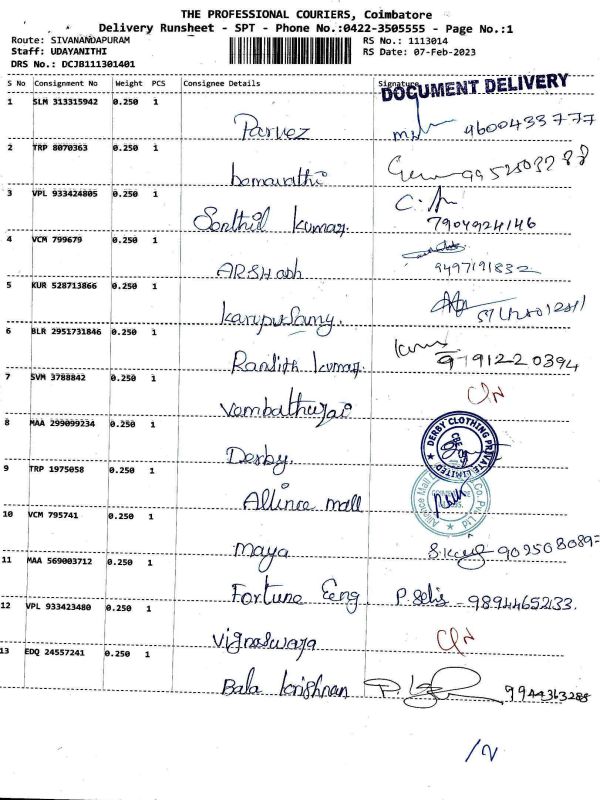 THE PROFESSIONAL COURIERS, Coimbatore
Delivery Runsheet - SPT - Phone No.:0422-3505555 - Page No.:1
Route: SIVANANDAPURAM RS No.: 1113014
Staff: UDAYANITHI RS Date: 07-Feb-2023
DRS No.: DCJB111301401
S No Consignment No Weight PCS Consignee Details Signature
DOCUMENT DELIVERY
1 SLM 313315942 0.250 1
Parvez 9600433777
2 TRP 8070363 0.250 1
3 VPL 933424805 0.250 1
Senthil Kumar. 7904924146
4 VCM 799679 0.250 1
ARSHash 9497191832
5 KUR 528713866 0.250 1
Karupusamy.
6 BLR 2951731846 0.250 1
Ranjith Kumar.
7 SVM 3788842 0.250 1
8 MAA 299099234 0.250 1
Derby. DERBY CLOTHING PRIVATE LIMITED
9 TRP 1975058 0.250 1
Allince mall Alliance Mall Co. Pvt. Ltd
10 VCM 795741 0.250 1
maya
11 MAA 569003712 0.250 1
Fortune Eeng P. Selvi - 9894465233.
12 VPL 933423480 0.250 1
Vignaswara
13 EDQ 24557241 0.250 1
Bala Krishnan 9944363288